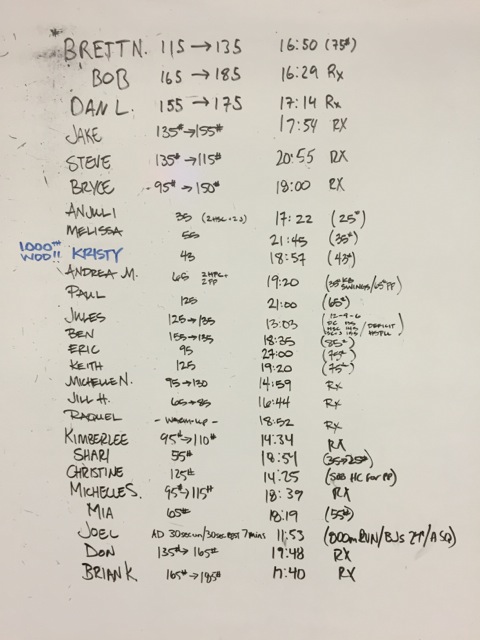 BRETT N. 115 → 135 16:50 (75#)
BOB 165 → 185 16:29 Rx
DAN L. 155 → 175 17:14 Rx
JAKE 135# → 155# 17:54 RX
STEVE 135# → 115# 20:55 RX
BRYCE 95# → 150# 18:00 RX
ANJULI 35 17:22 (25#)
MELISSA 55 21:45 (35#)
1000TH WOD!! KRISTY 43 18:57 (43#)
ANDREA M. 65 2HPC+ 2PP 19:20 (35# KB SWINGS/65# PP)
PAUL 125 21:00 (65#)
JULES 125 → 135 13:03 (12-9-6 DEFICIT HSPU)
BEN 155 → 135 18:35 (85#)
ERIC 95 27:00 (75#)
KEITH 125 19:20 (75#)
MICHELLE N. 95 → 130 14:59 Rx
JILL H. 65 → 85 16:44 Rx
RAQUEL - WARM-UP - 18:52 Rx
KIMBERLEE 95# → 110# 14:34 RX
SHARI 55# 18:54 (35→25#)
CHRISTINE 125# 14:25 (SUB HC for PP)
MICHELLE S. 95# → 115# 18:39 RX
MIA 65# 18:19 (55#)
JOEL AD 30secon/30sec REST 7 mins 11:53 (800m RUN/BJs 24"/A SQ)
DON 135# → 165# 19:48 RX
BRIAN K 165# → 185# 17:40 RX